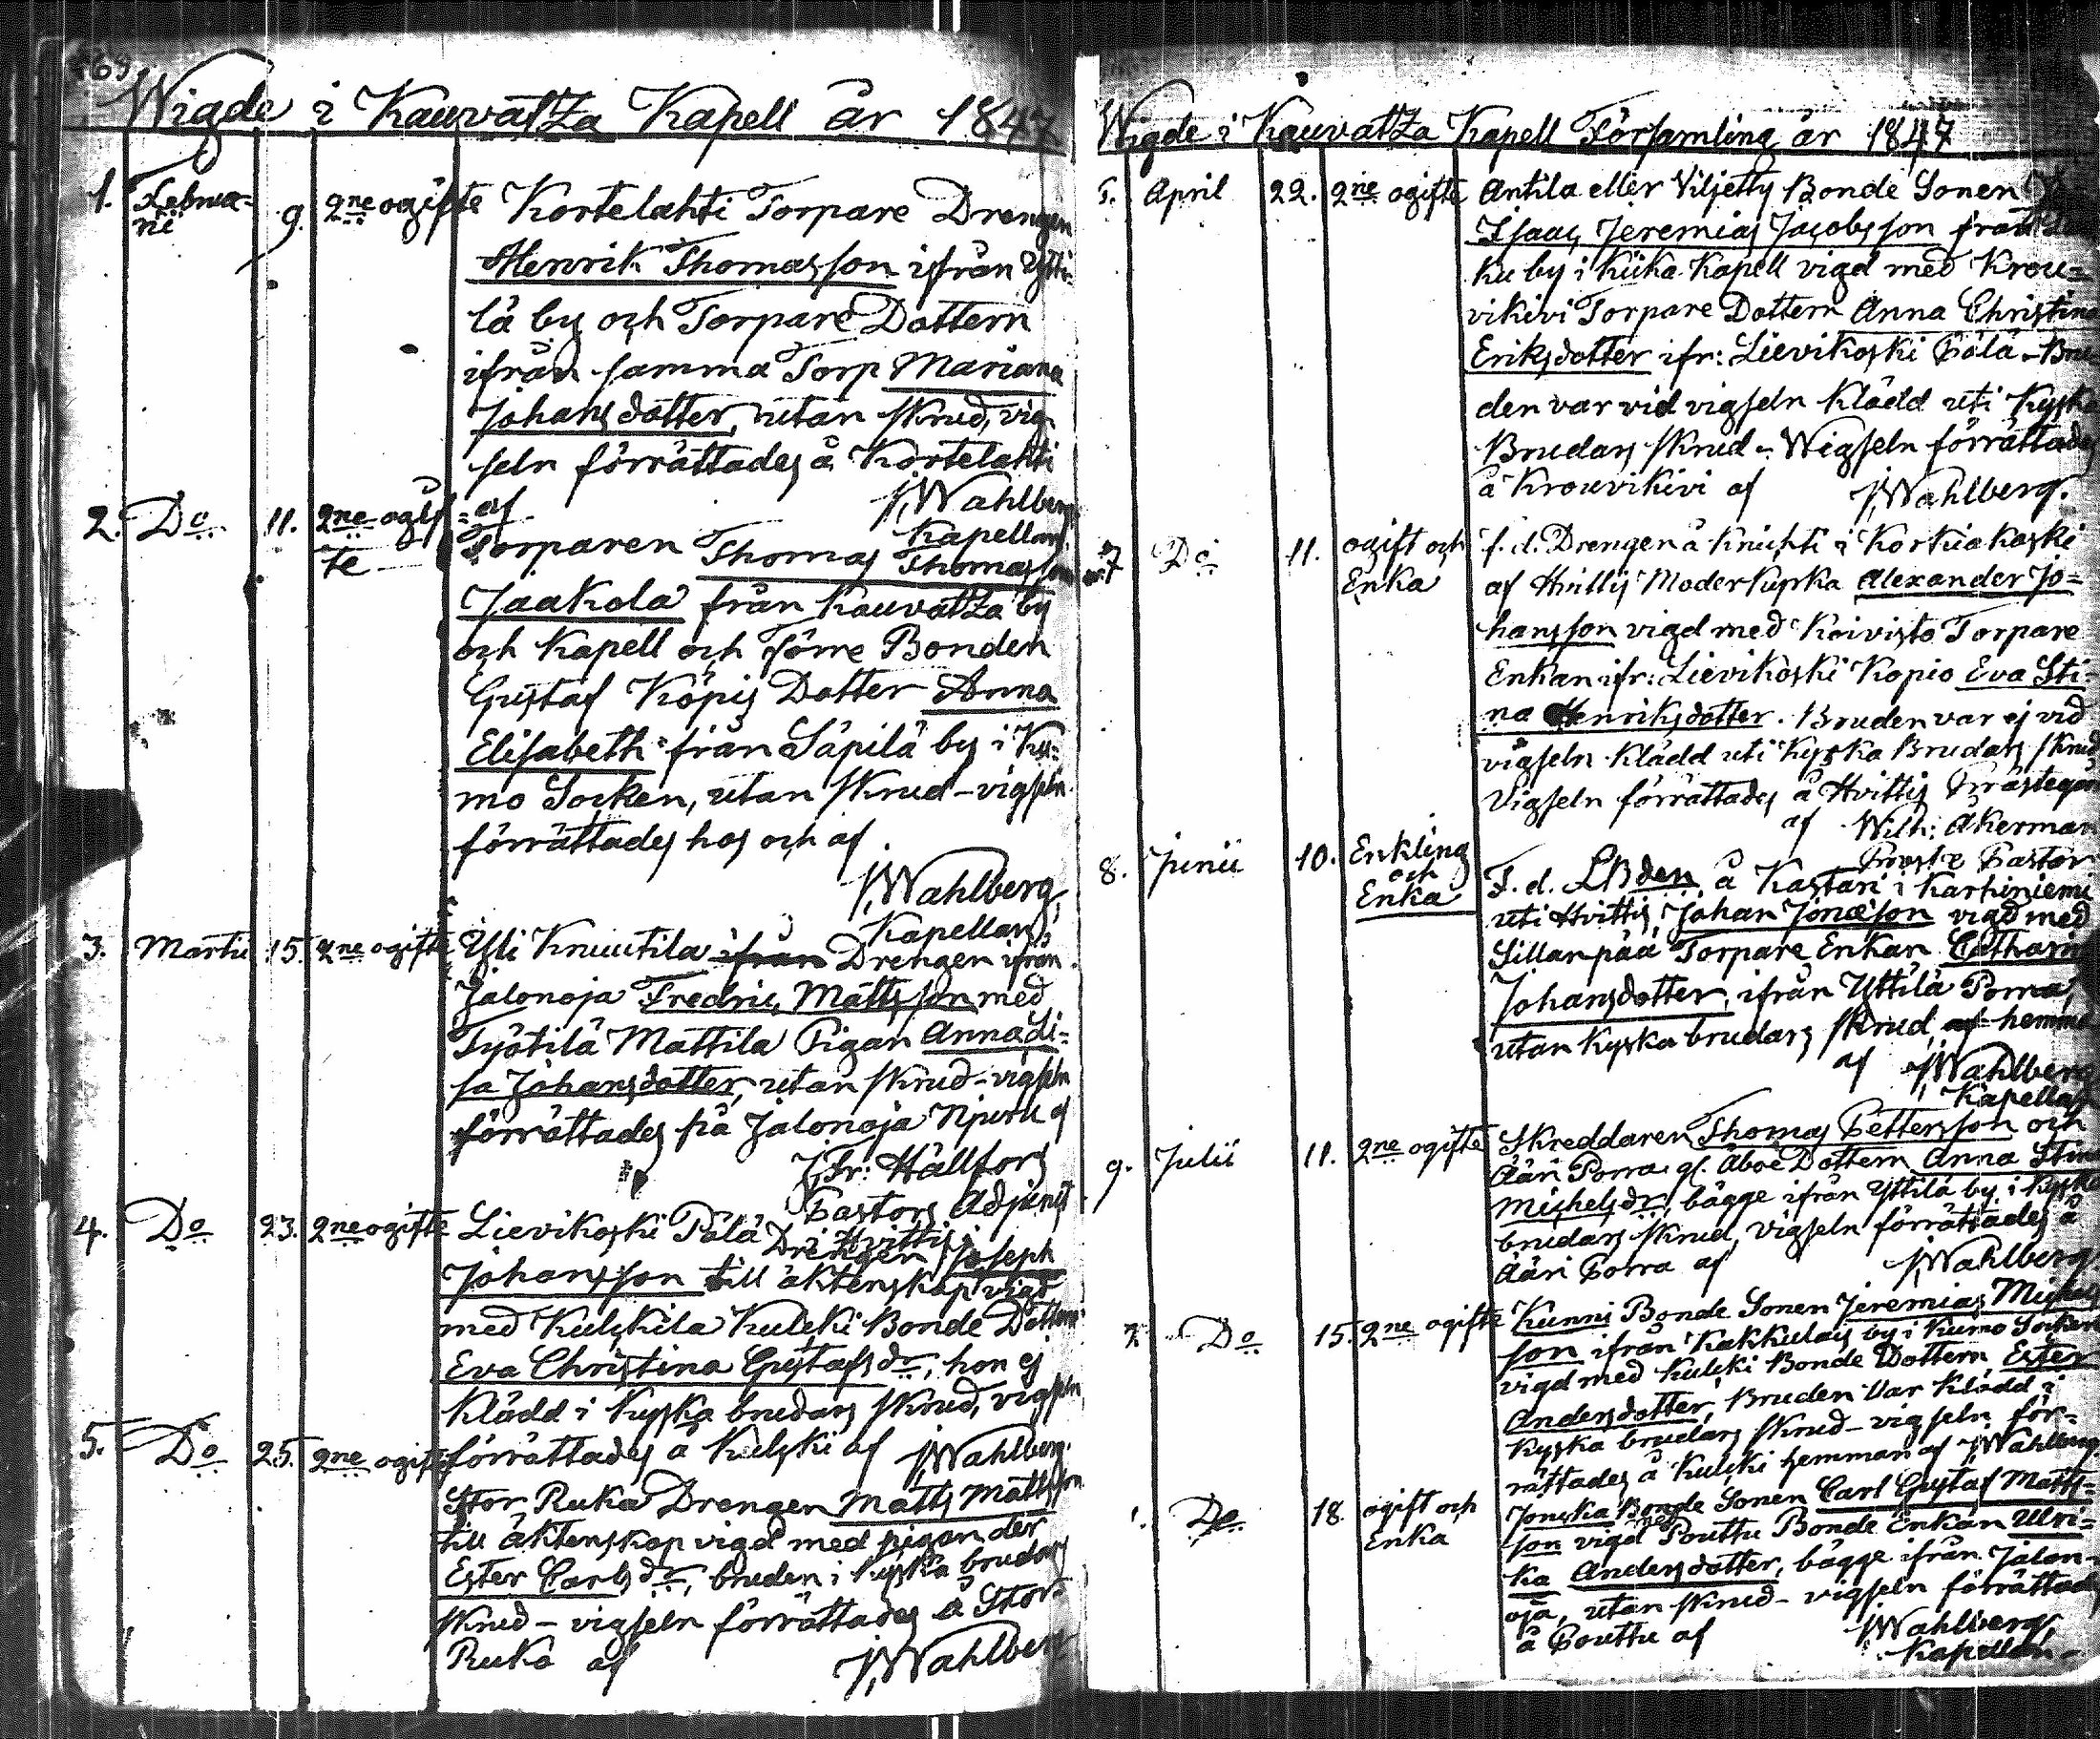 Wigde i Kauvatza Kapell år 1847
1. Februa- 9. 2ne ogifte Kortelahti Torpare Drengen
rii
Henrik Thomasson ifrån Ytti-
lä by och Torpare Dottern
ifrån samma Torp Mariana
Johansdotter, utan skrud, vig
seln förrättades å Kortelahti
af J. Wahlberg
Kapellan.
2. Do 11. 2ne ogif- Torparen Thomas Thomasson
te
Jaakola från Kauvatza by
och Kapell och Förre Bonden
Gustaf Köpis Dotter Anna
Elisabeth från Säpilä by i Ku-
mo Socken, utan skrud - vigseln
förrättades hos och af
J. Wahlberg,
Kapellan.
3. Martii 15. 2ne ogifte Yli Knuutila ifrån Drengen ifrån
Jalonoja Fredric Mattsson med
Työtilä Mattila Pigan Anna Li-
sa Johansdotter, utan skrud - vigseln
förrättades på Jalonoja Njuru af
J. Fr: Hällfors
Pastors Adjunct
i Hvittis
4. Do 23. 2ne ogifte Lievikoski Pälä Drengen Joseph
Johansson till äktenskap vigd
med Kulskila Kulski Bonde Dottern
Eva Christina Gustafsdr, hon ej
klädd i kyska brudars skrud, vigseln
förrättades å Kulski af J. Wahlberg.
5. Do 25. 2ne ogifte
Stor Ruka Drengen Matts Mattsson
till äktenskap vigd med pigan der
Ester Carlsdr, bruden i kyska brudars
skrud - vigseln förrättades å Stor-
Ruka af J. Wahlberg
Wigde i Kauvatza Kapell Församling år 1847
April 22. 2ne ogifte Antila eller Viljetty Bonde Sonen
Isaac Jeremias Jacobsson från
ku by i Kiika Kapell vigd med Krou-
vikivi Torpare Dottern Anna Christina
Eriksdotter ifr: Lievikoski Pälä - Bru
den var vid vigseln klädd uti Kyska
Brudars skrud - Wigseln förrättades
å Krouvikivi af J. Wahlberg.
7 Do 11. ogift och f. d. Drengen å Knuhti i Korkiakoski
Enka af Hvittis Moderkyrka Alexander Jo-
hansson vigd med Koivisto Torpare
Enkan ifr: Lievikoski Kopio Eva Sti-
na Henriksdotter. Bruden var ej vid
vigseln klädd uti Kyska Brudars skrud
Vigseln förrättades å Hvittis Prästegård
af Wilh: Åkerman
Prost & Pastor
8. Junii 10. Enkling F. d. LBden å Kastari i Karhiniemi
och
Enka uti Hvittis Johan Jonæson vigd med
Sillanpää Torpare Enkan Catharina
Johansdotter, ifrån Yttilä Porra,
utan kyska brudars skrud, af hemma
af J. Wahlberg
Kapellan
9. Julii 11. 2ne ogifte Skreddaren Thomas Pettersson och
Ääri Porra gl. Åboe Dottern Anna Stina
Michelsdr, bägge ifrån Yttilä by, i kyska
brudars skrud, vigseln förrättades å
Ääri Porra af J. Wahlberg.
Do 15. 2ne ogifte Kunni Bonde Sonen Jeremias Michels
son ifrån Kakkulais by i Kumo Socken
vigd med Kulski Bonde Dottern Ester
Andersdotter, Bruden var klädd i
kyska brudars skrud - vigseln för-
rättades å Kulski hemman af J. Wahlberg.
Do 18. ogift och Jonska Bonde Sonen Carl Gustaf Matts-
Enka son vigd med Pouttu Bonde Enkan Ulri-
ka Andersdotter, bägge ifrån Jalon-
oja, utan skrud - vigseln förrättades
å Pouttu af J. Wahlberg,
Kapellan -